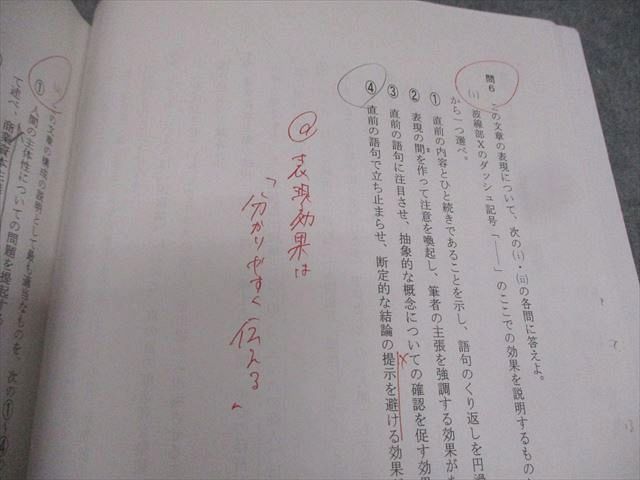 問6 この文章の表現について、次の(i)・(ii)の各問に答えよ。
(i) 波線部Xのダッシュ記号「――」のここでの効果を説明するもの
から一つ選べ。
① 直前の内容とひと続きであることを示し、語句のくり返しを円滑
② 表現の間を作って注意を喚起し、筆者の主張を強調する効果が
③ 直前の語句に注目させ、抽象的な概念についての確認を促す効
④ 直前の語句で立ち止まらせ、断定的な結論の提示を避ける効果
@ 表現効果は
「分かりやすく伝える」
の文章の構成の説明として最も適当なものを、次の①〜④
① 人間の主体性についての問題を提起する
て述べ、商業資本主